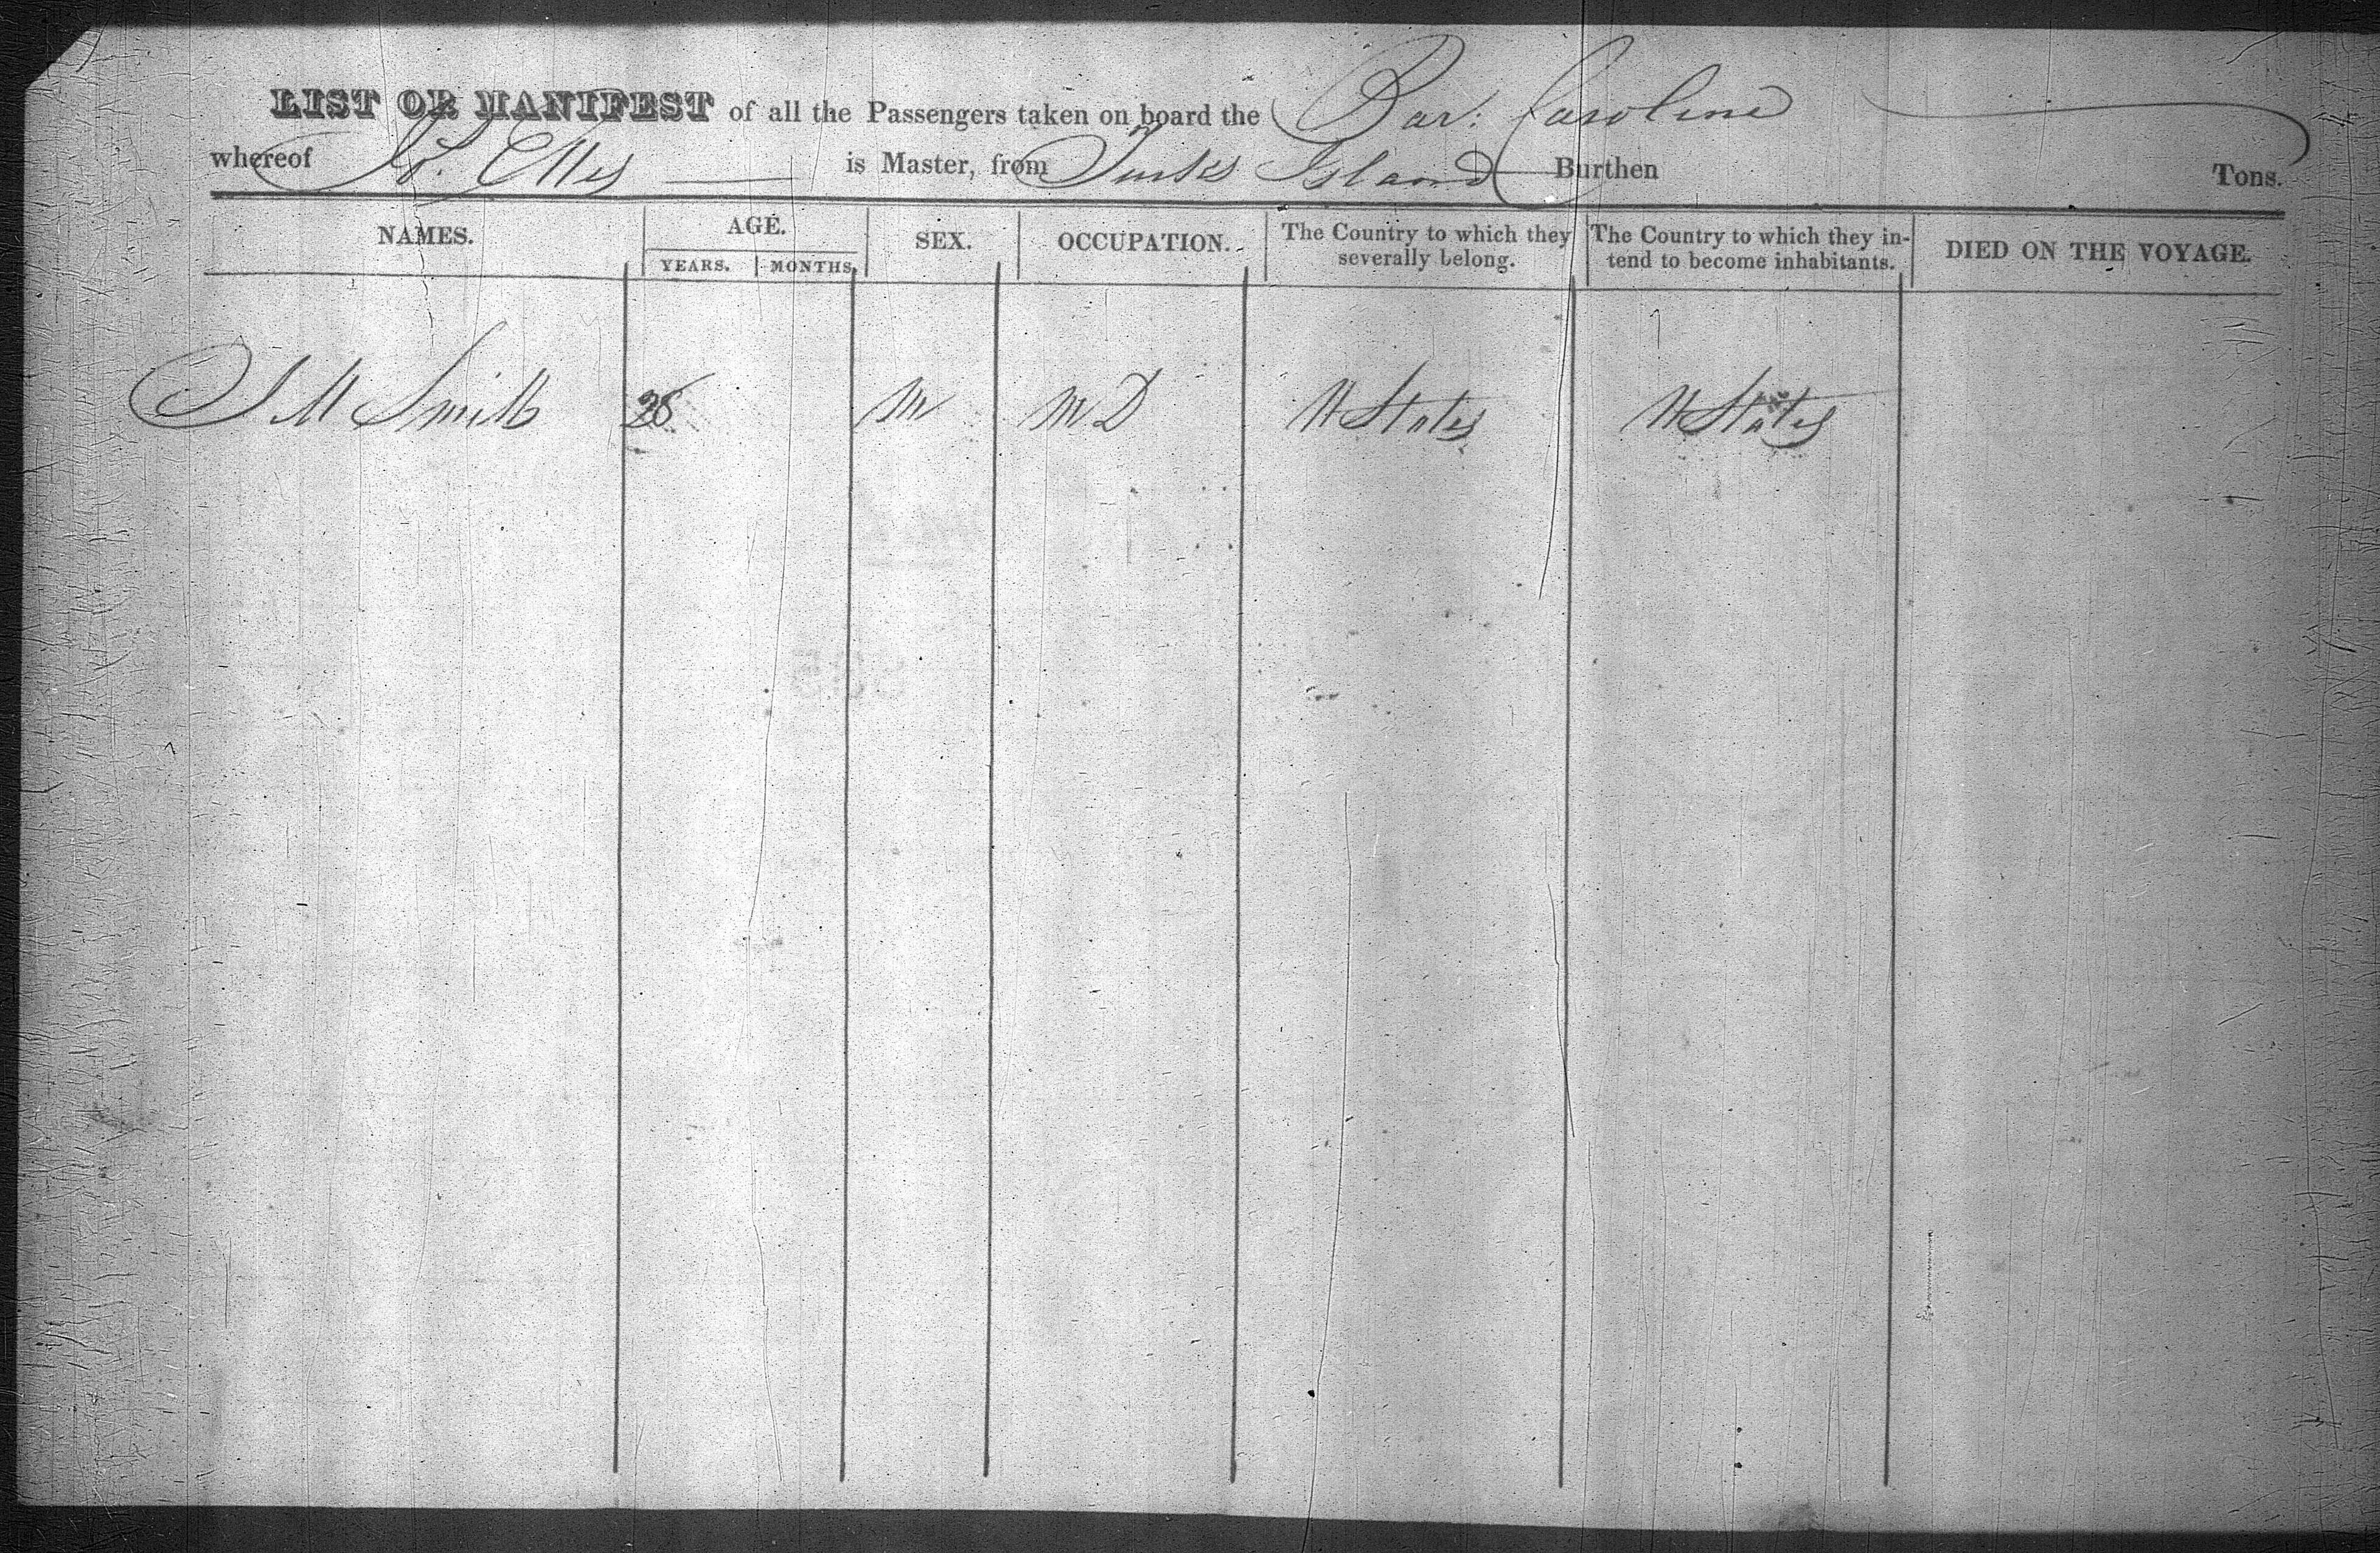 LIST OR MANIFEST of all the Passengers taken on board the Bar: Caroline
whereof Ellis is Master, from Turks Island Burthen Tons.
NAMES. AGE. SEX. OCCUPATION. The Country to which they severally belong. The Country to which they intend to become inhabitants. DIED ON THE VOYAGE.
YEARS. MONTHS.
M Smith 28 M MD U States U States